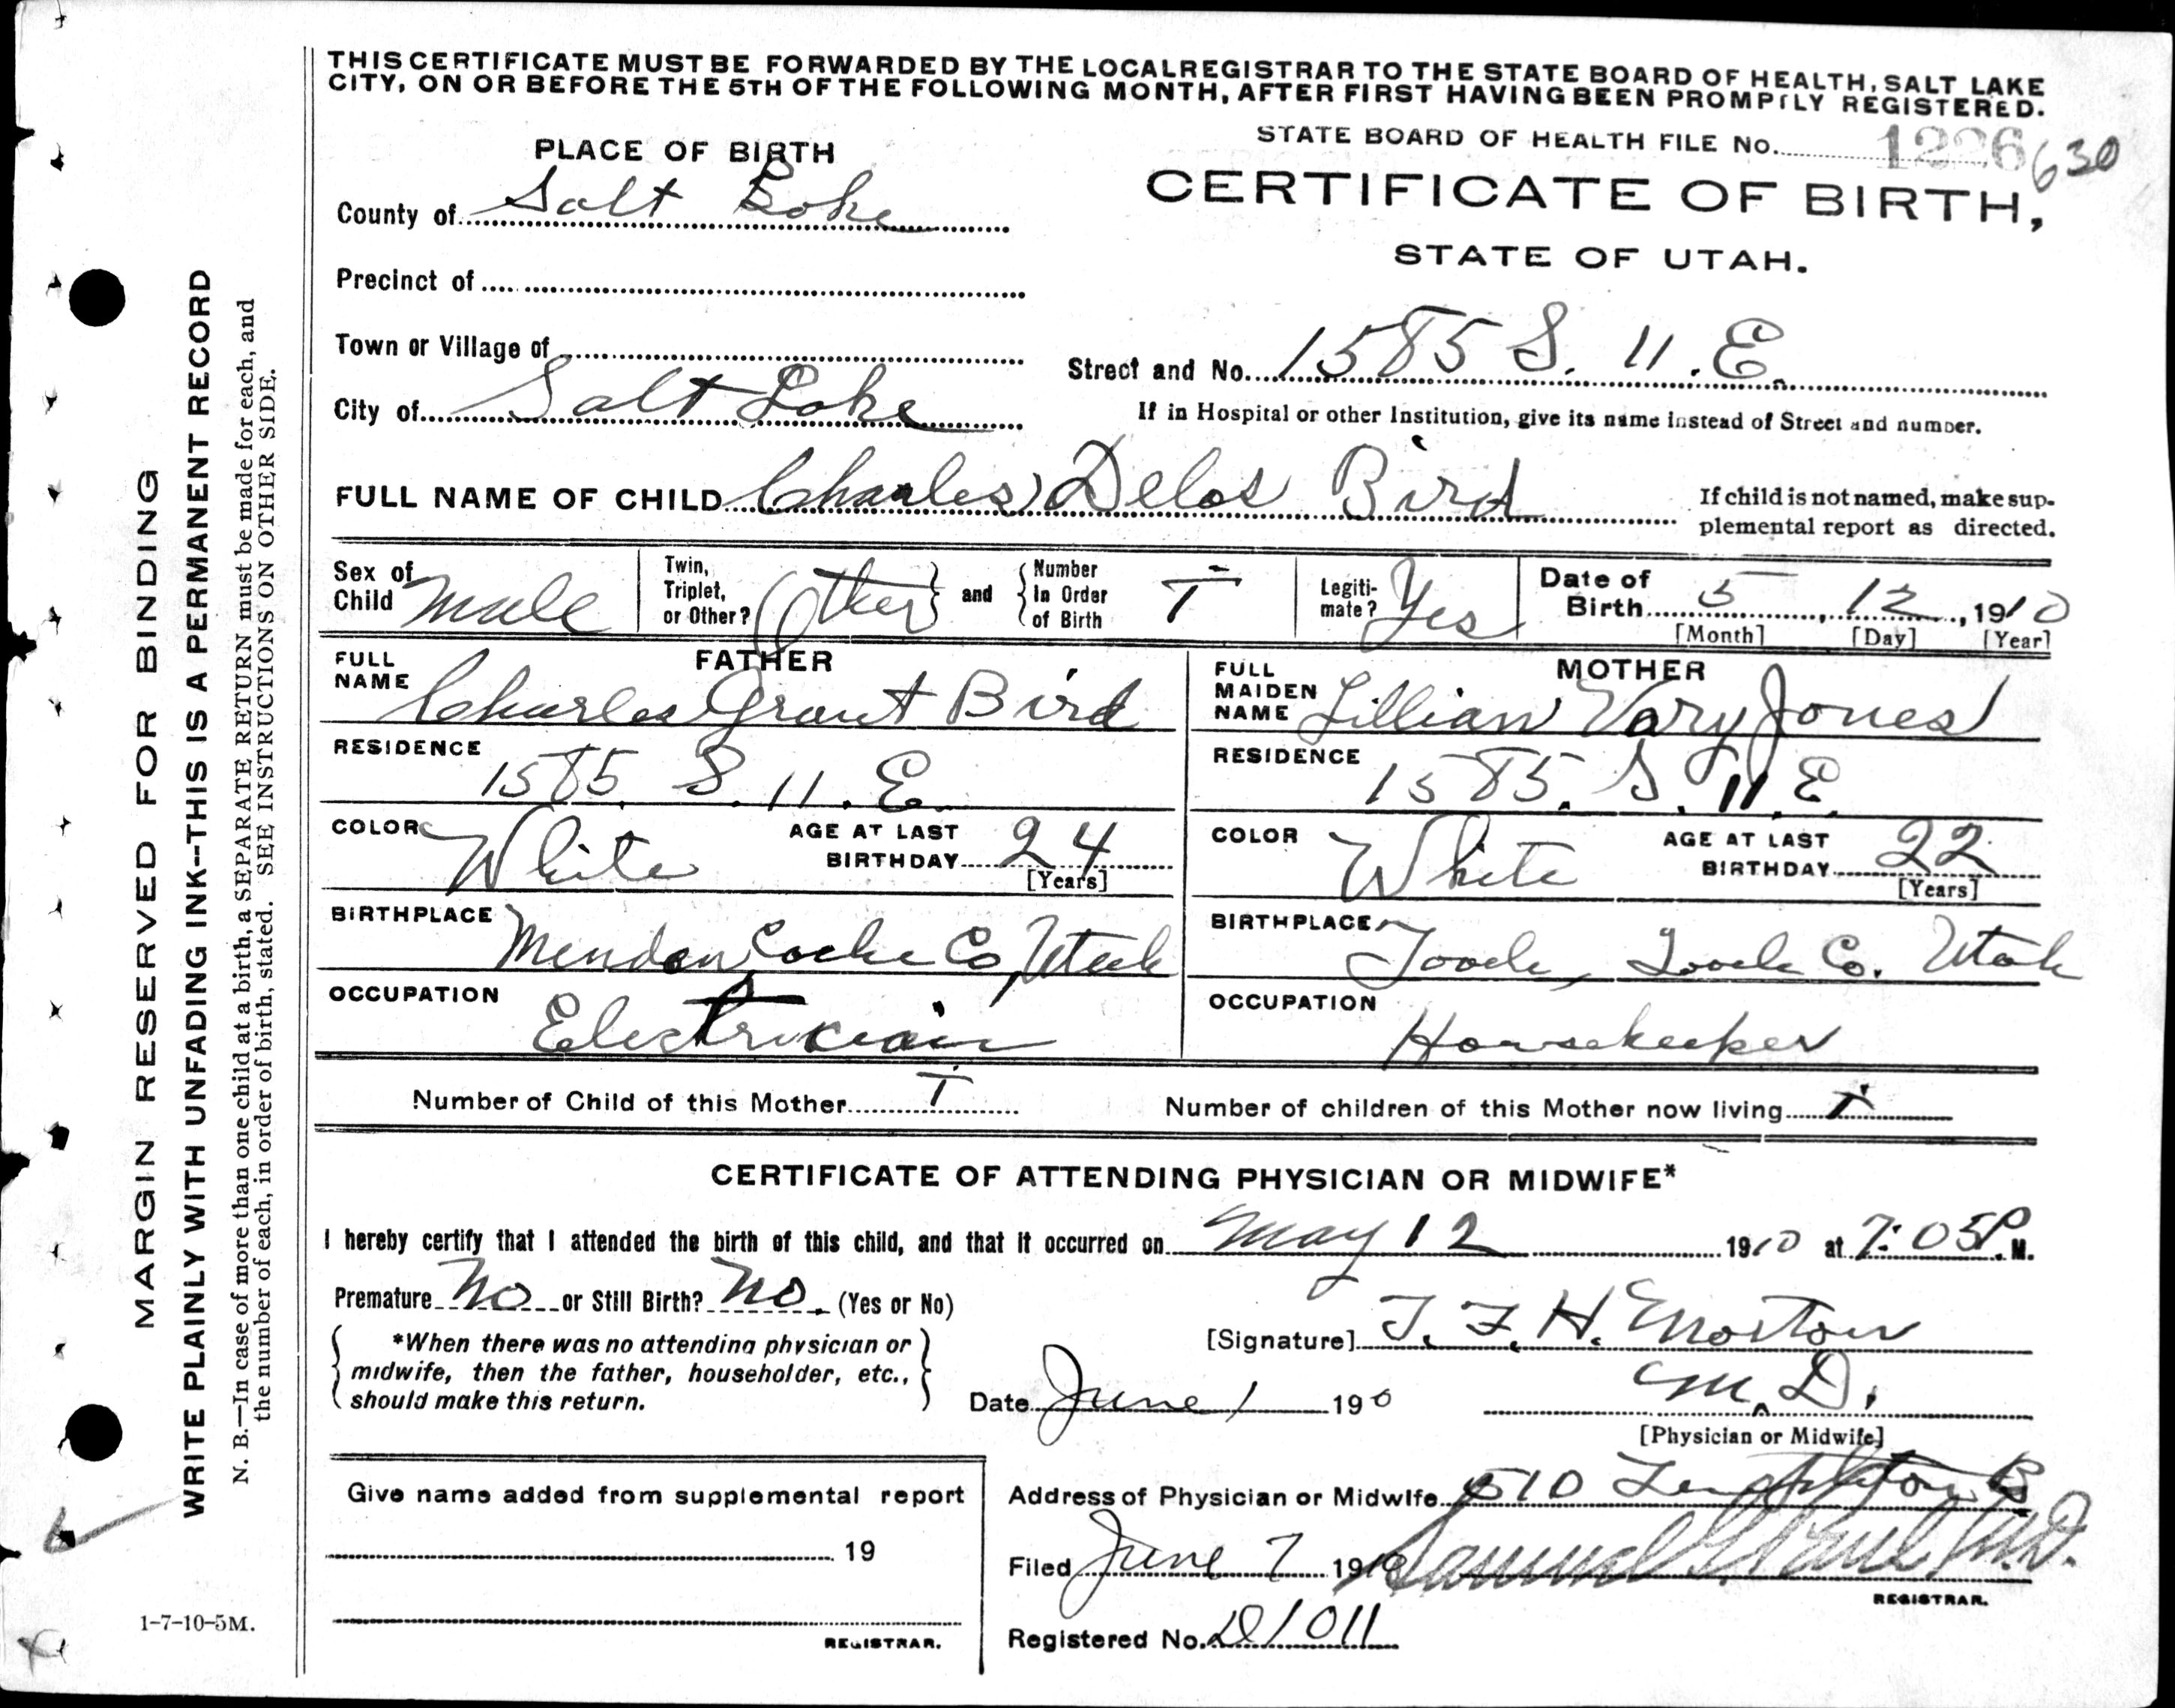 THIS CERTIFICATE MUST BE FORWARDED BY THE LOCAL REGISTRAR TO THE STATE BOARD OF HEALTH, SALT LAKE
CITY, ON OR BEFORE THE 5TH OF THE FOLLOWING MONTH, AFTER FIRST HAVING BEEN PROMPTLY REGISTERED.
STATE BOARD OF HEALTH FILE No. 1226 630
PLACE OF BIRTH
CERTIFICATE OF BIRTH,
County of Salt Lake
STATE OF UTAH.
Precinct of
Town or Village of
Street and No. 1585 S. 11. E.
City of Salt Lake
If in Hospital or other Institution, give its name instead of Street and number.
FULL NAME OF CHILD Charles Delos Bird
If child is not named, make sup-
plemental report as directed.
Sex of Child Male
Twin, Triplet, or Other? Other and Number In Order of Birth I
Legiti-mate? Yes
Date of Birth 5, 12, 1910
[Month] [Day] [Year]
FATHER
FULL NAME Charles Grant Bird
RESIDENCE 1585. S. 11. E.
COLOR White AGE AT LAST BIRTHDAY 24
[Years]
BIRTHPLACE Mendon, Cache Co, Utah
OCCUPATION Electrician
MOTHER
FULL MAIDEN NAME Lillian Vary Jones
RESIDENCE 1585. S. 11. E.
COLOR White AGE AT LAST BIRTHDAY 22
[Years]
BIRTHPLACE Tooele, Tooele Co. Utah
OCCUPATION Housekeeper
Number of Child of this Mother I Number of children of this Mother now living I
CERTIFICATE OF ATTENDING PHYSICIAN OR MIDWIFE*
I hereby certify that I attended the birth of this child, and that it occurred on May 12 1910 at 7:05 P. M.
Premature No or Still Birth? No. (Yes or No)
*When there was no attending physician or
midwife, then the father, householder, etc.,
should make this return.
[Signature] T. F. H. Morton
Date June 1 190 M.D.
[Physician or Midwife]
Give name added from supplemental report
19
REGISTRAR.
Address of Physician or Midwife 510
Filed June 7 1910 Samuel G. Paul M.D.
REGISTRAR.
Registered No. D1011
MARGIN RESERVED FOR BINDING
WRITE PLAINLY WITH UNFADING INK--THIS IS A PERMANENT RECORD
N. B.—In case of more than one child at a birth, a SEPARATE RETURN must be made for each, and
the number of each, in order of birth, stated. SEE INSTRUCTIONS ON OTHER SIDE.
1-7-10-5M.